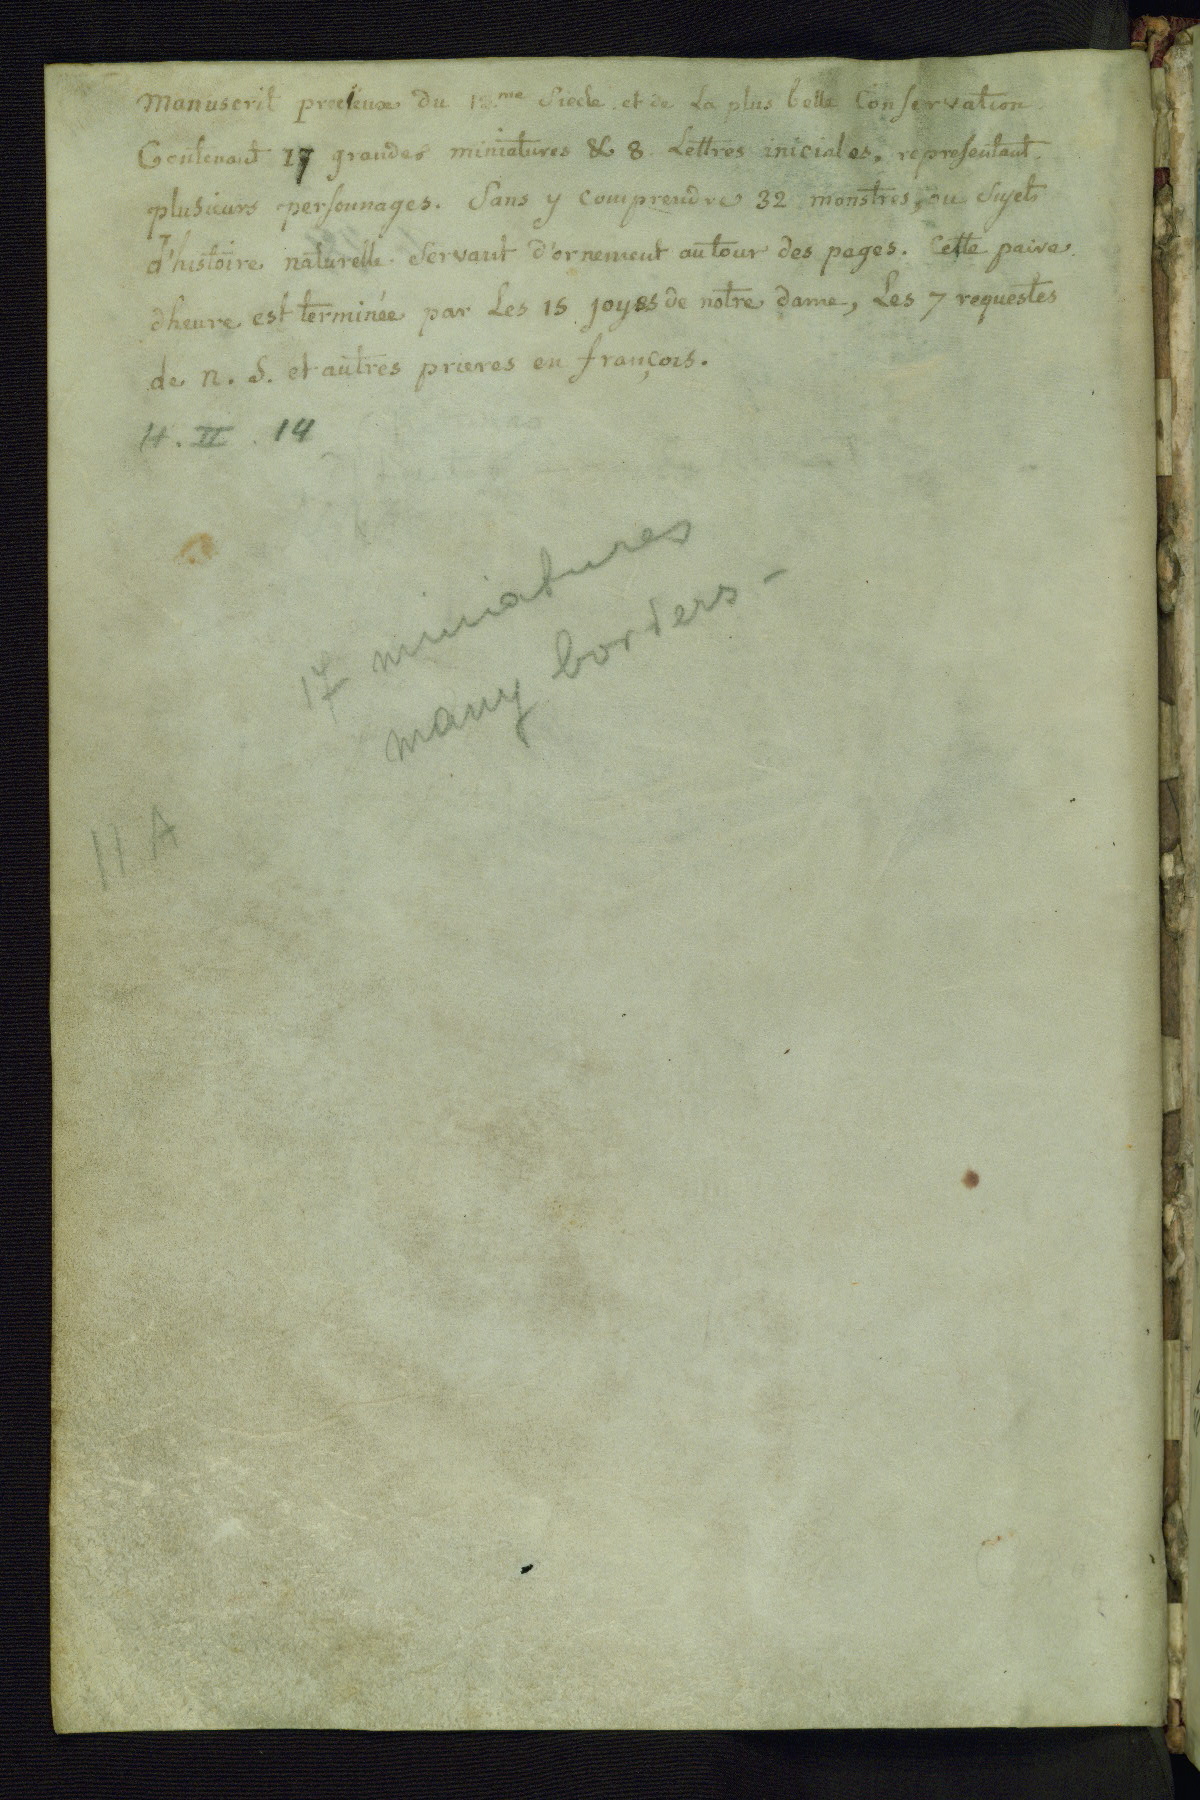 Manuscrit precieux du 15.me Siecle et de La plus belle Conservation.
Contenant 17 grandes miniatures & 8 Lettres inicialos, representant
plusieurs personnages. Sans y comprendre 32 monstres, ou Sujets
d'histoire naturelle Servant d'ornement autour des pages. Cette paire
dheure est terminée par Les 15 joyes de notre dame, Les 7 requestes
de n. S. et autres prieres en françois.
H. II. 14
17 miniatures
many borders -
11 A